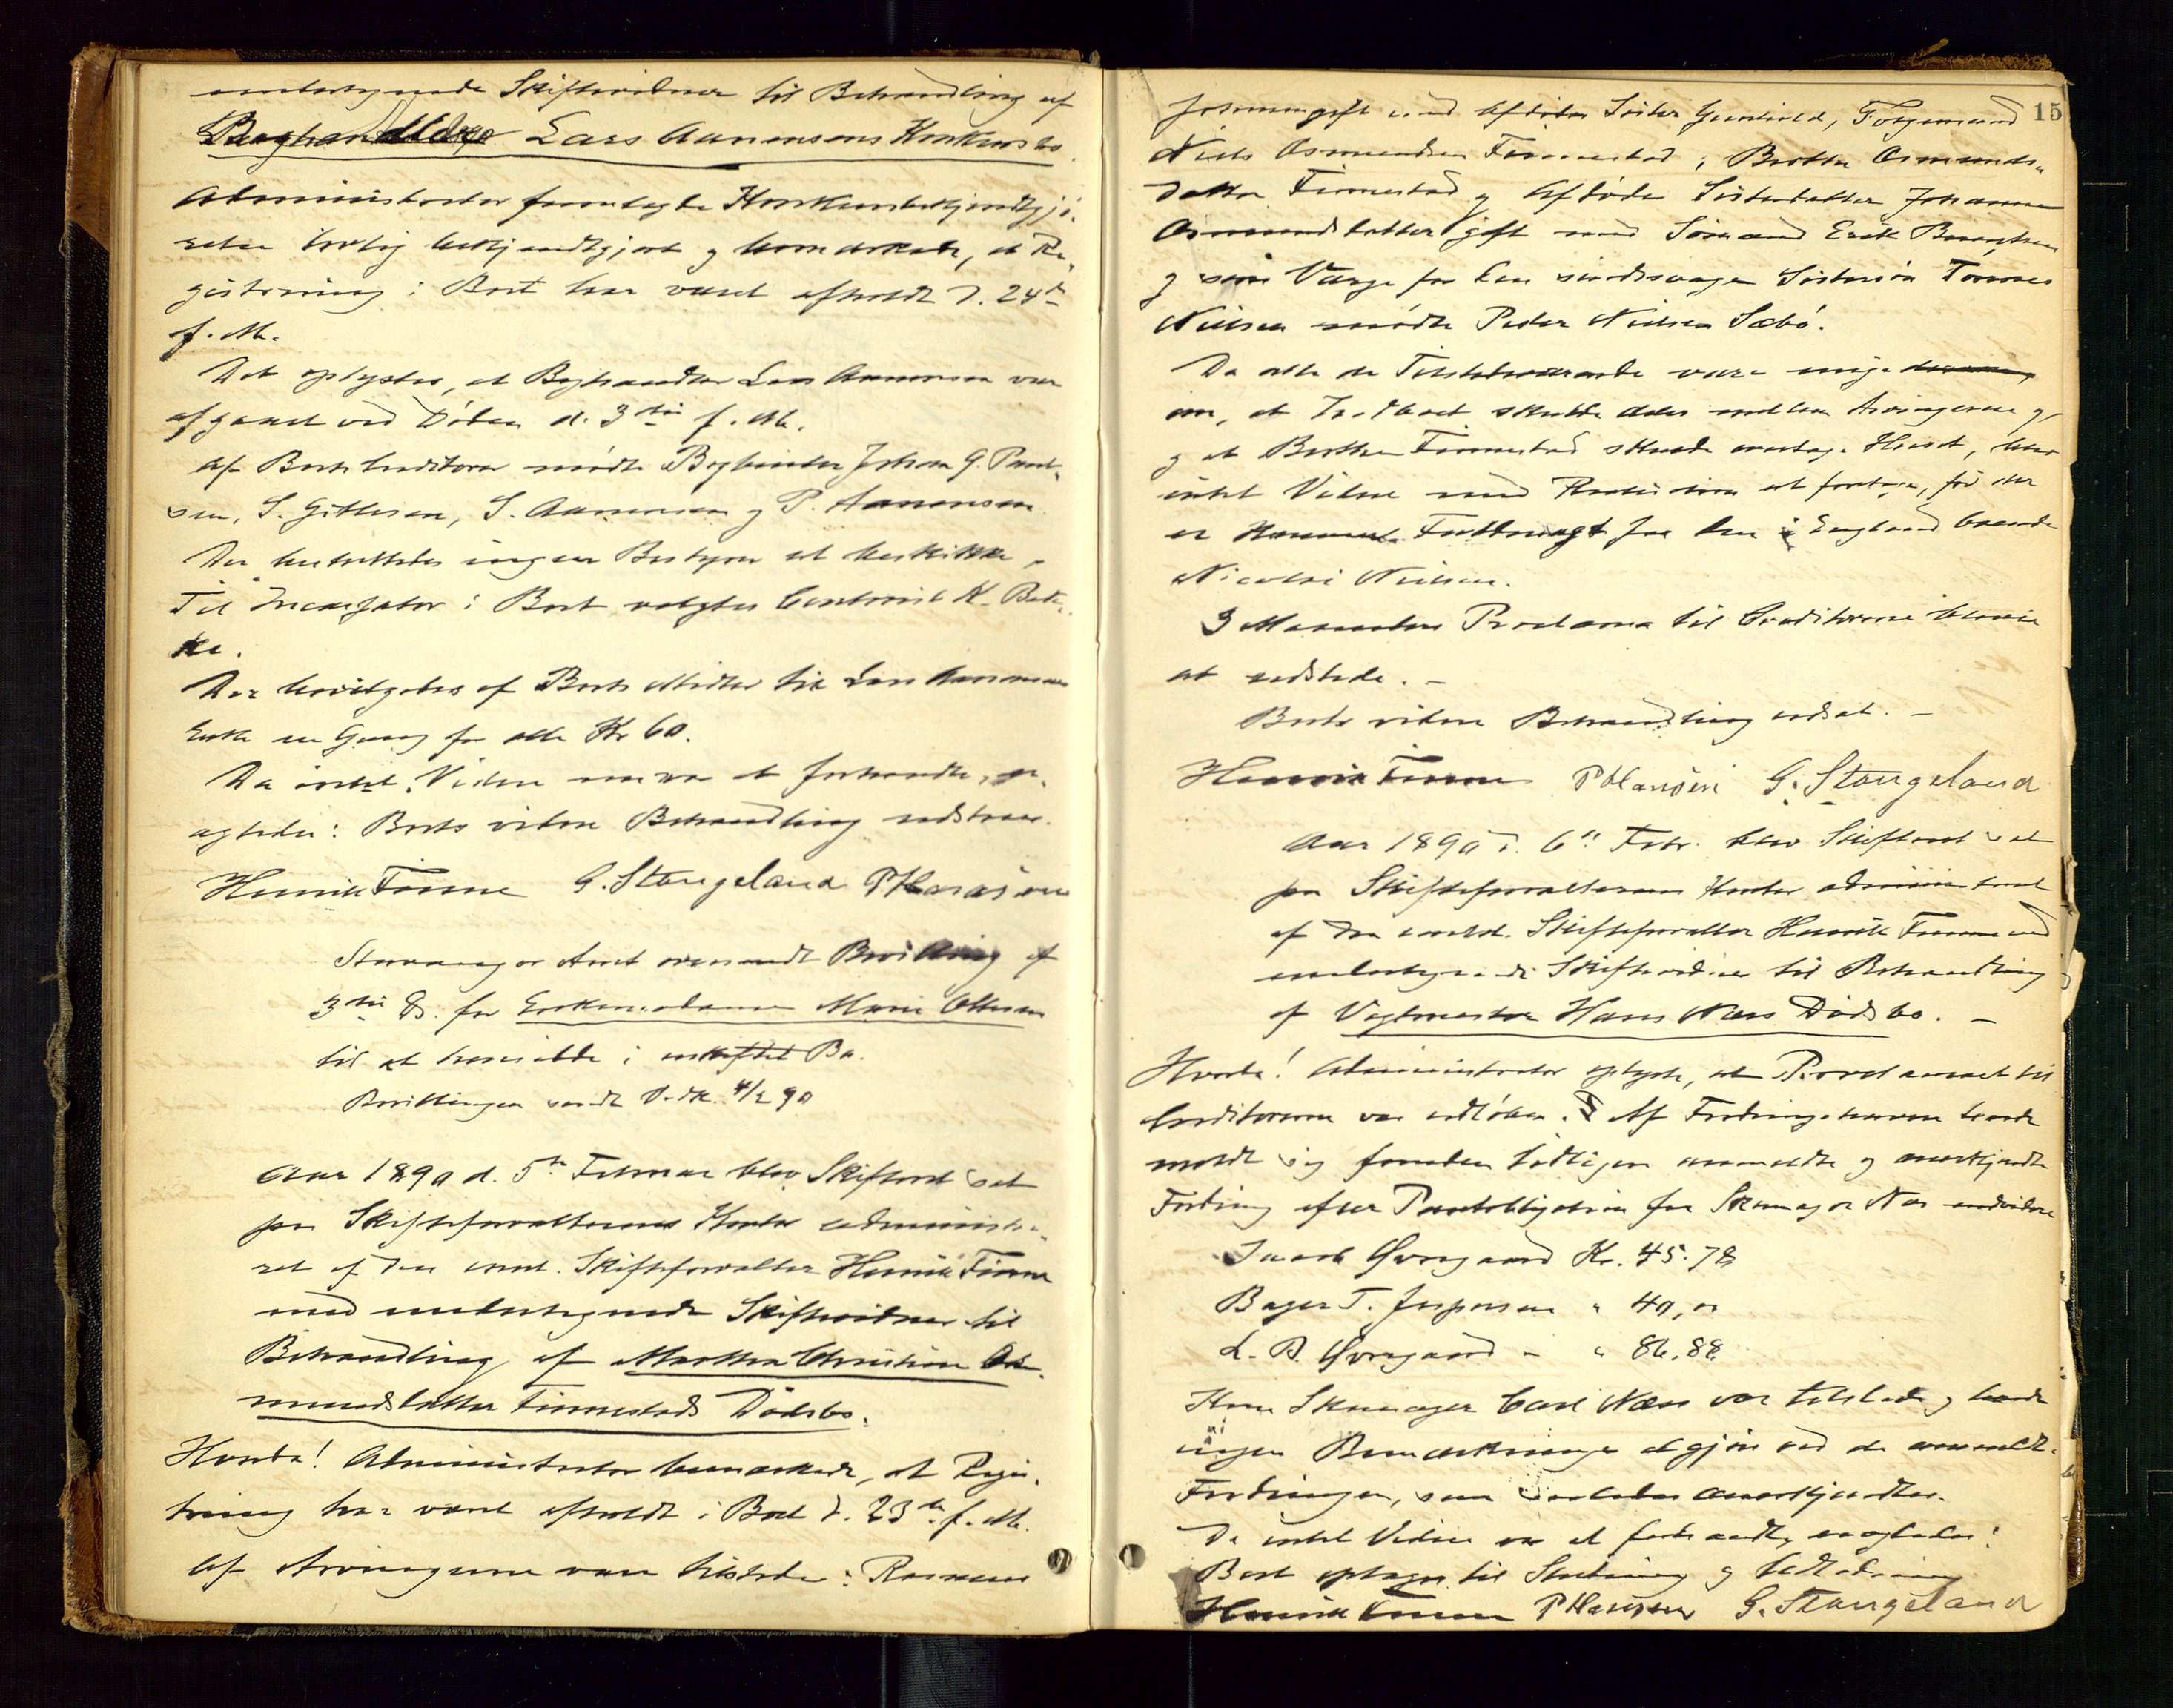 undertegnede Skiftevidner til Behandling af
Boghandler Lars Aanensens Konkursbo.
Administrator foretagte Konkursbekjendtgjø-
relse lovlig bekjendtgjort og bemærkede, at Re-
gistrering i Boet har været afholdt d. 24de
f. M.
Det oplystes, at Boghandler Lars Aanensen var
afgaaet ved Døden d. 3die f. M.
Af Boets Creditorer mødte Bogbinder Johan G. Poul-
sen, S. Gitlesen, S. Aanensen og P. Aanensen
Der besluttedes ingen Bestyrer at beskikke.
Til Incasator i Boet valgtes Contorist K. Bek-
ke.
Der bevilgedes af Boets Midler til Lars Aanensens
Enke en Gang for alle Kr 60.
Da intet Videre nu var at forhandle, er-
agtedes: Boets videre Behandling udstaar.
Henrik Finne G. Stangeland P Hansen
Stavanger Amt oversendt Bevilling af
3die ds. for Enkemadame Marie Olsen
til at hensidde i uskiftet Bo.
Bevillingen sendt V.dk. 4/2 90
Aar 1890 d. 5te Februar blev Skifteret sat
paa Skifteforvalterens Kontor administre-
ret af den const. Skifteforvalter Henrik Finne
med undertegnede Skiftevidner til
Behandling af Martha Christine Os-
mundsdatter Finnestads Dødsbo.
Hvorda! Administrator bemærkede, at Regi-
strering har været afholdt i Boet d. 23de f. M.
Af Arvingerne vare tilstede: Rasmus
15
Johnsen gift med Afdødes Søster Gunhild, Formand
Niels Osmundsen Finnestad, Berthe Osmunds-
datter Finnestad og Afdøde Søsterdatter Johanne
Osmundsdatter gift med Sømand Erik Berentsen
og som Værge for den sindssvage Søstersøn Tønnes
Nielsen mødte Peder Nielsen Sæbø.
Da alle de Tilstedeværende vare enige
om, at Indboet skulde deles mellem Arvingerne og
og at Berthe Finnestad skulde overtage Huset, blev
intet Videre med Realisation at foretage, før der
er kommet Fuldmagt fra den i England boende
Nicolai Nielsen.
3 Maaneders Proclama til Creditorerne bliver
at udstede. –
Boets videre Behandling udsat. –
Henrik Finne P Hansen G. Stangeland
Aar 1890 d. 6te Febr. blev Skifteret sat
paa Skifteforvalterens Kontor administreret
af den const. Skifteforvalter Henrik Finne med
undertegnede Skiftevidner til Behandling
af Vagtmester Hans Næss Dødsbo. –
Hvorda! Administrator oplyste, at Proclamaet til
Creditorerne var udløben. Af Fordringshavere havde
meldt sig foruden tidligere anmeldte og anerkjendte
Fordring efter Pantobligation fra Skomager Næs endvidere
Jacob Øvregaard Kr. 45.78
Bager T. Jespersen " 40,00
L. B. Øvregaard – " 86,88
Skomager Carl Næss var tilstede og havde
ingen Bemærkninger at gjøre ved de anmeldte
Fordringer, som saaledes anerkjendtes.
Da intet Videre var at forhandle, eragtedes:
Boet optages til Slutning og Udlodning
Henrik Finne P Hansen G. Stangeland